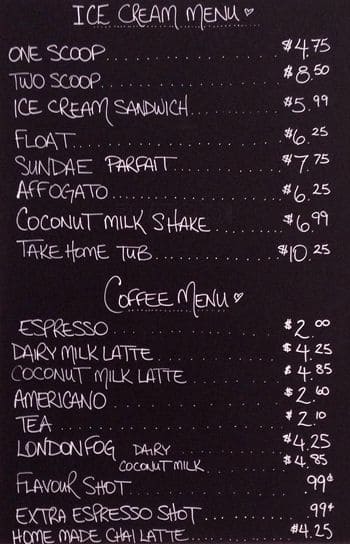 ICE CREAM MENU ♡
ONE SCOOP.................... $4.75
TWO SCOOP.................... $8.50
ICE CREAM SANDWICH.......... $5.99
FLOAT........................ $6.25
SUNDAE PARFAIT............... $7.75
AFFOGATO..................... $6.25
COCONUT MILK SHAKE.......... $6.99
TAKE HOME TUB................ $10.25
COFFEE MENU ♡
ESPRESSO..................... $2.00
DAIRY MILK LATTE............. $4.25
COCONUT MILK LATTE........... $4.85
AMERICANO.................... $2.60
TEA.......................... $2.10
LONDON FOG DAIRY............. $4.25
COCONUT MILK................. $4.85
FLAVOUR SHOT................. .99¢
EXTRA ESPRESSO SHOT.......... .99¢
HOME MADE CHAI LATTE......... $4.25